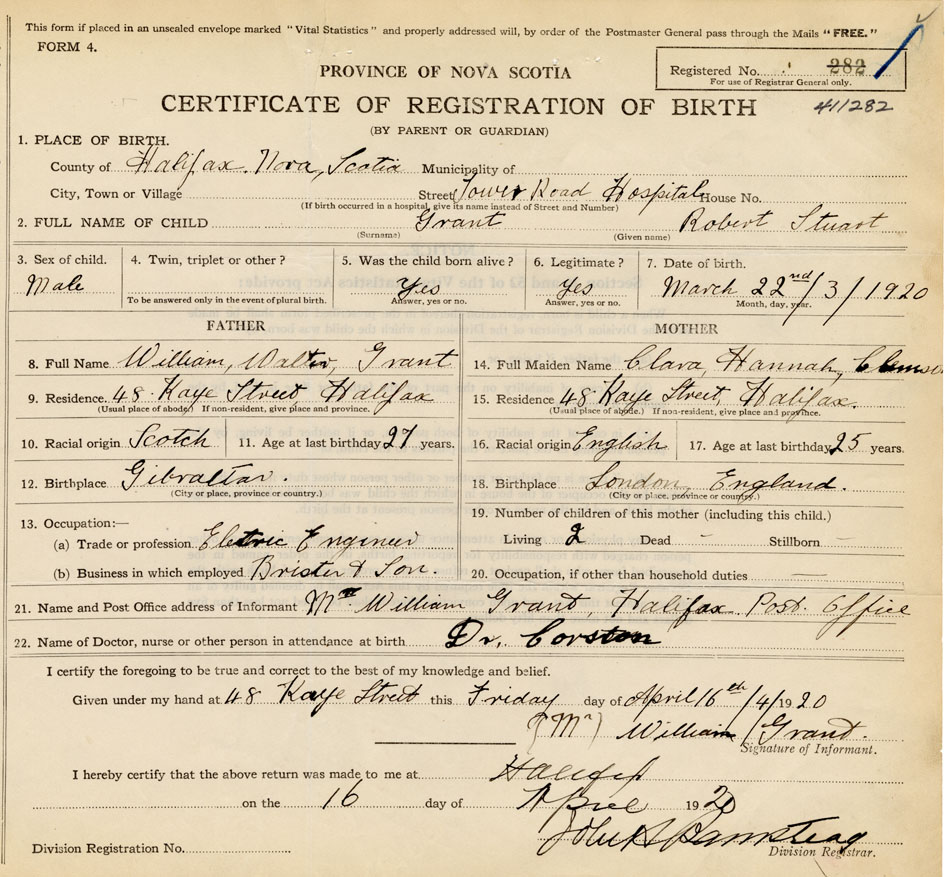 This form if placed in an unsealed envelope marked "Vital Statistics" and properly addressed will, by order of the Postmaster General pass through the Mails "FREE."
FORM 4.
Registered No. 282
For use of Registrar General only.
PROVINCE OF NOVA SCOTIA
CERTIFICATE OF REGISTRATION OF BIRTH
411282
(BY PARENT OR GUARDIAN)
1. PLACE OF BIRTH.
County of Halifax. Nova, Scotia Municipality of
City, Town or Village Street Tower Road Hospital House No.
(If birth occurred in a hospital, give its name instead of Street and Number)
2. FULL NAME OF CHILD Grant Robert Stuart
(Surname) (Given name)
3. Sex of child. 4. Twin, triplet or other? 5. Was the child born alive? 6. Legitimate? 7. Date of birth.
Male Yes Yes March 22nd/3/1920
To be answered only in the event of plural birth. Answer, yes or no. Answer, yes or no. Month, day, year.
FATHER MOTHER
8. Full Name William, Walter, Grant 14. Full Maiden Name Clara, Hannah,
9. Residence. 48 Kaye Street, Halifax 15. Residence 48 Kaye Street, Halifax.
(Usual place of abode) If non-resident, give place and province. (Usual place of abode) If non-resident, give place and province.
10. Racial origin Scotch 11. Age at last birthday 27 years. 16. Racial origin English 17. Age at last birthday 25 years.
12. Birthplace Gibraltar. 18. Birthplace London, England.
(City or place, province or country.) (City or place, province or country.)
13. Occupation:— 19. Number of children of this mother (including this child.)
(a) Trade or profession Eletric Engineer Living 2 Dead - Stillborn
(b) Business in which employed Brister & Son. 20. Occupation, if other than household duties
21. Name and Post Office address of Informant Mr William Grant, Halifax Post. Office
22. Name of Doctor, nurse or other person in attendance at birth Dr. Corston
I certify the foregoing to be true and correct to the best of my knowledge and belief.
Given under my hand at 48 Kaye Street this Friday day of April 16th/4/1920
(Mr) William Grant.
Signature of Informant.
I hereby certify that the above return was made to me at Halifax
on the 16 day of April 1920
John A Barnstead
Division Registration No. Division Registrar.